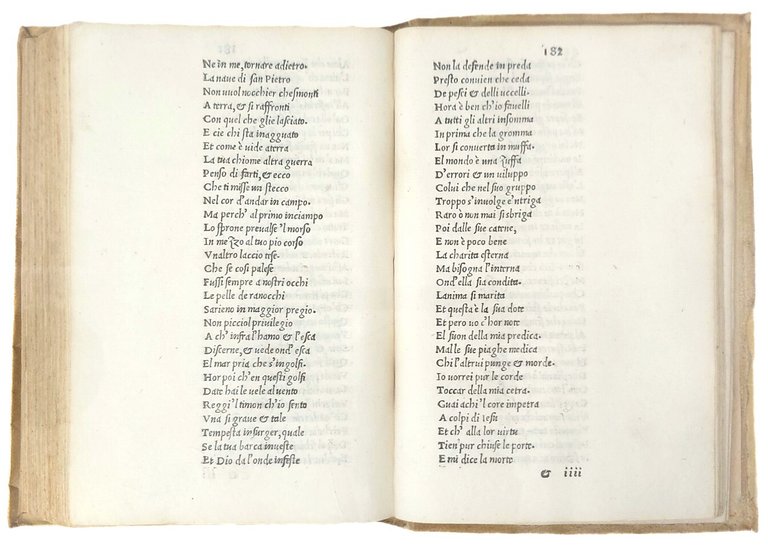 Ne in me, tornare adietro.
La naue di san Pietro
Non uuol nocchier che smonti
A terra, & si raffronti
Con quel che glie lasciato.
E cie chi sta inagguato
Et come è uide aterra
La tua chiome altra guerra
Penso di farti, & ecco
Che ti misse un stecco
Nel cor d'andar in campo.
Ma perch' al primo inciampo
Lo sprone preualse 'l morso
In mezzo al tuo pio corso
Vnaltro laccio tese.
Che se cosi palese
Fussi sempre a nostri occhi
Le pelle de ranocchi
Sarieno in maggior pregio.
Non picciol priuilegio
A ch' infra l'hamo & l'esca
Discerne, & uede ond' esca
El mar pria che s'ingolfi.
Hor poi ch'en questi golfi
Date hai le uele al uento
Reggi 'l timon ch'io sento
Vna si graue & tale
Tempesta insurger, quale
Se la tua barca inueste
Et Dio da l'onde infeste
182
Non la defende in preda
Presto conuien che ceda
De pesci & delli uccelli.
Hora è ben ch'io fauelli
A tutti gli altri insomma
In prima che la gromma
Lor si conuerta in muffa.
El mondo è una zuffa
D'errori & un uiluppo
Colui che nel suo gruppo
Troppo s'inuolge e'ntriga
Raro ò non mai si sbriga
Poi dalle sue catene,
E non è poco bene
La charita esterna
Ma bisogna l'interna
Ond'ella sia condita.
Lanima si marita
Et questa è la sua dote
Et pero uo c'hor note
El suon della mia predica.
Mal le sue piaghe medica
Chi l'altrui punge & morde.
Io uorrei pur le corde
Toccar della mia cetra.
Guai achi 'l core impetra
A colpi di iesu
Et ch' alla lor uirtu
Tien pur chiuse le porte.
E mi dice la morte
& iiii